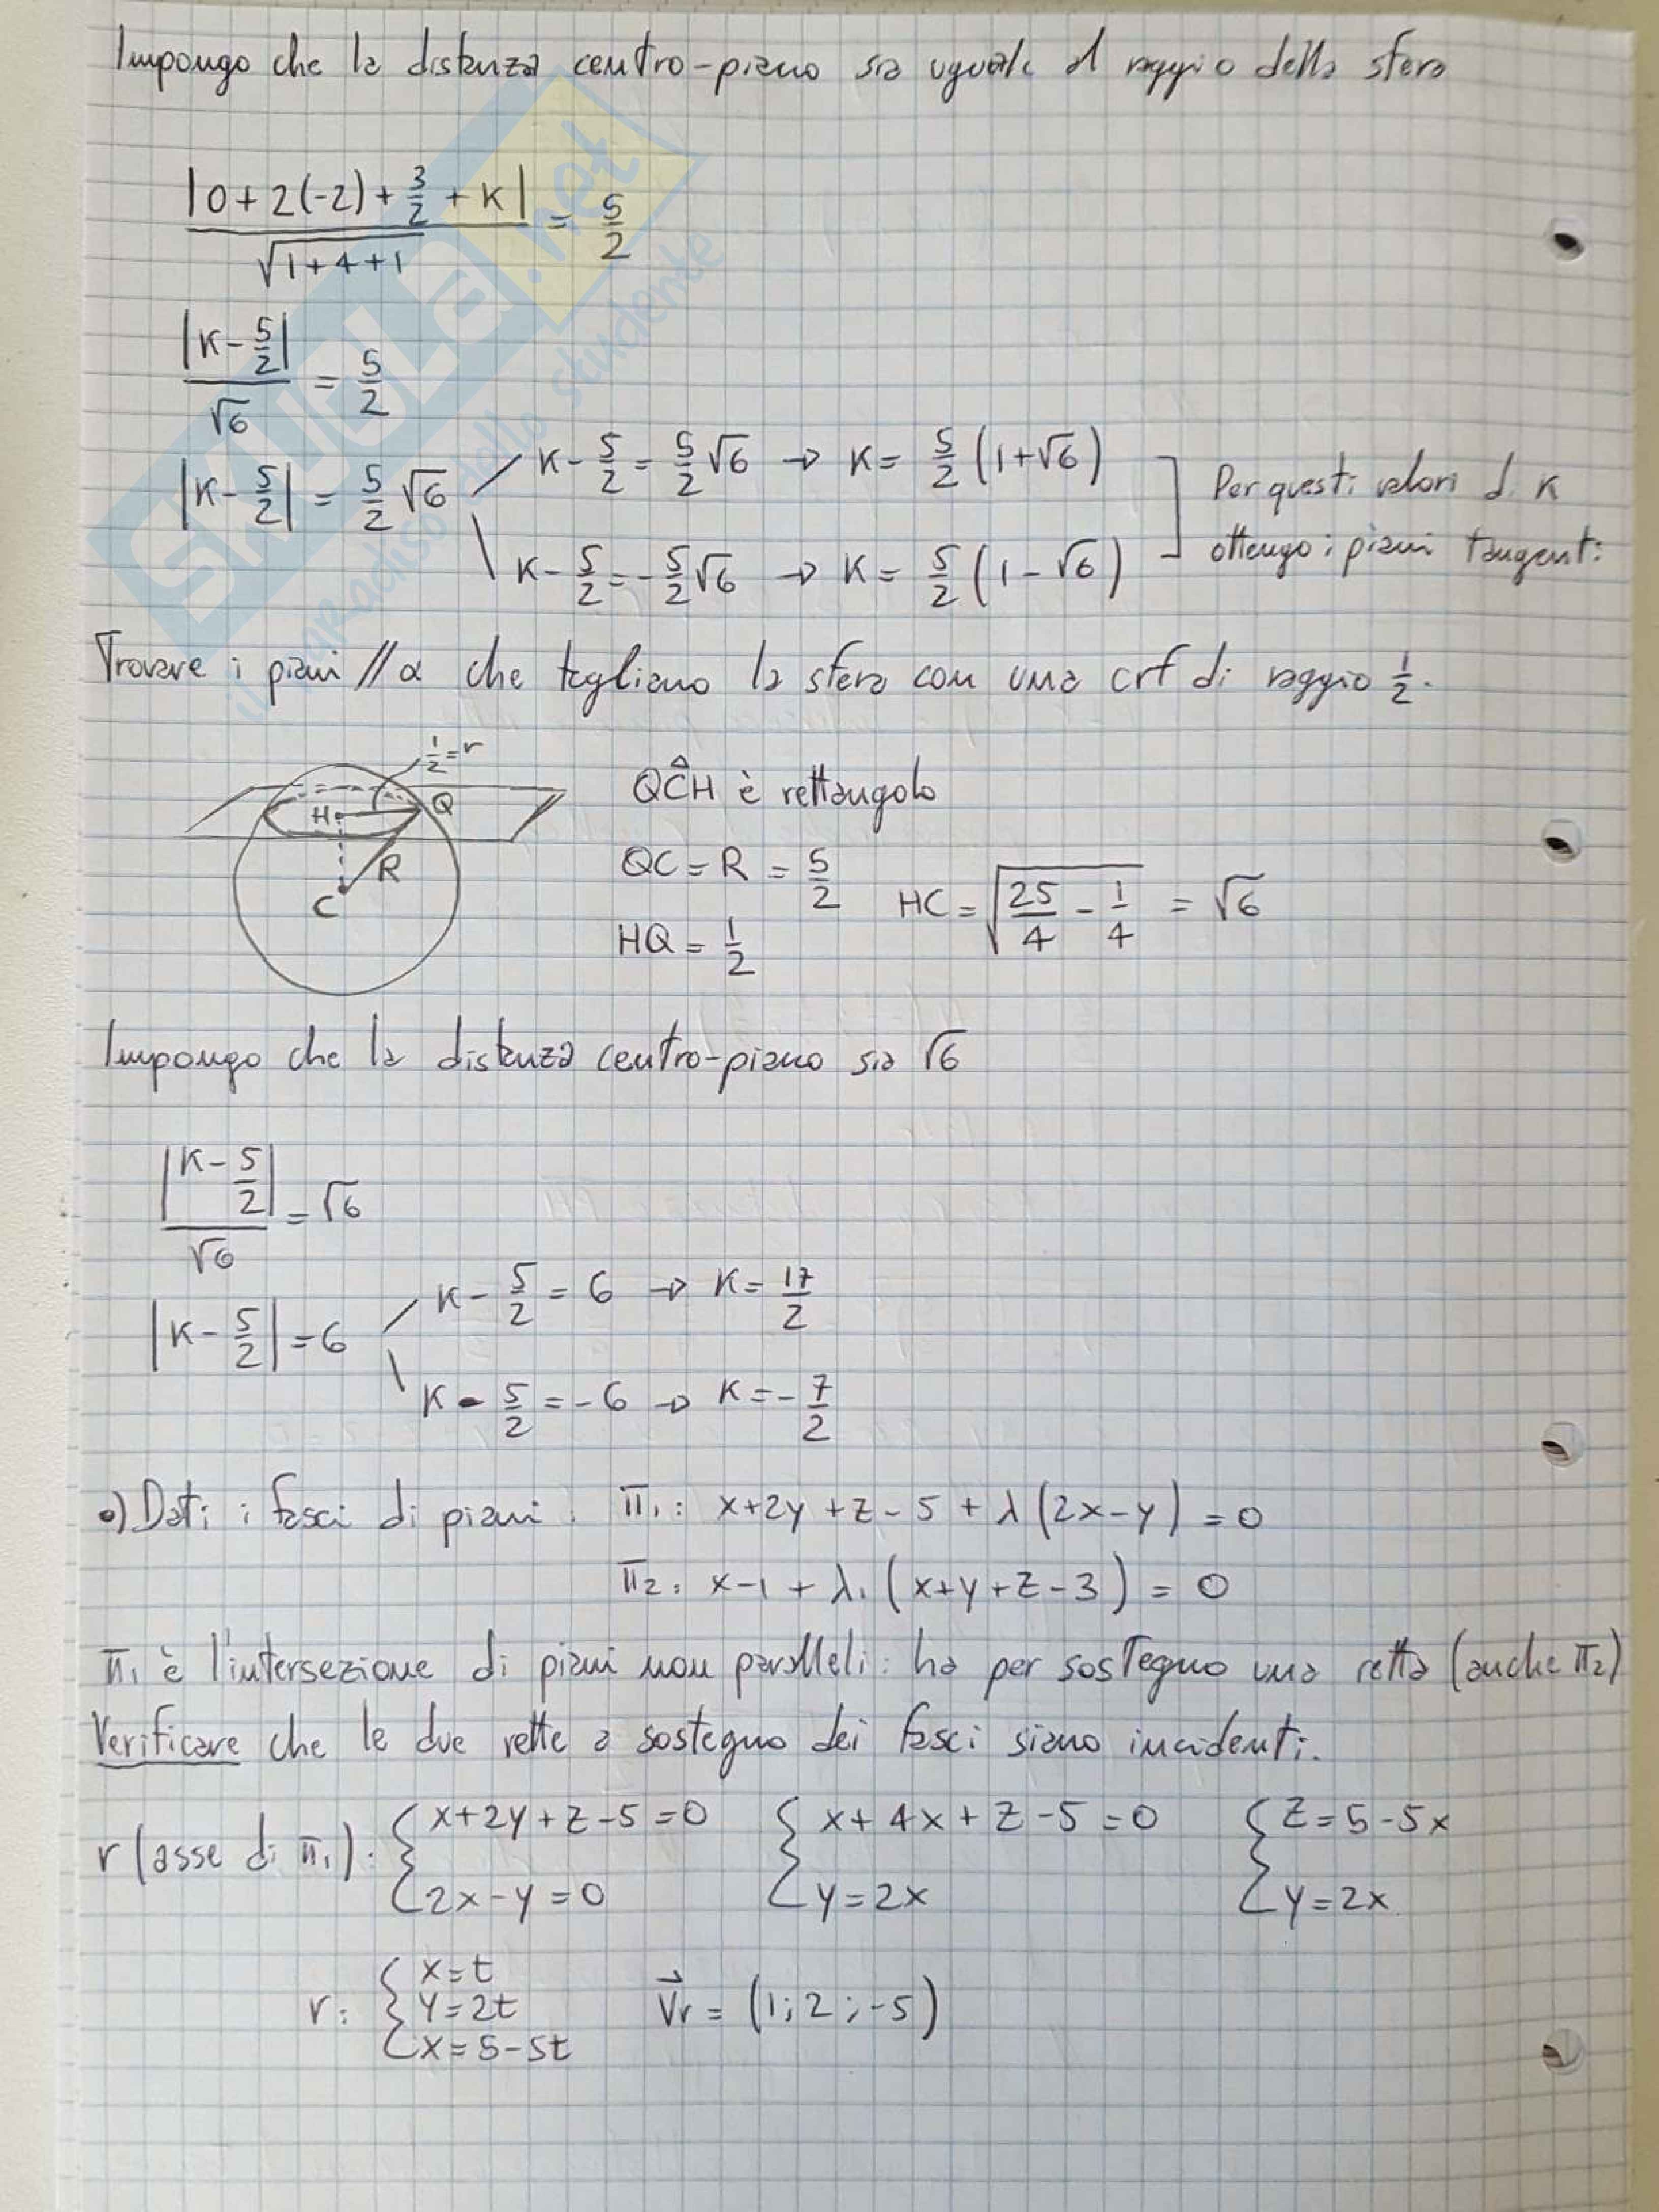 Impongo che la distanza centro-piano sia uguale al raggio della sfera
|0+2(-2)+3/2+K| / √(1+4+1) = 5/2
|K-5/2| / √6 = 5/2
|K-5/2| = 5/2 √6
K-5/2 = 5/2 √6 → K = 5/2 (1+√6)
K-5/2 = -5/2 √6 → K = 5/2 (1-√6)
Per questi valori di K
ottengo i piani tangenti
Trovare i piani // α che tagliano la sfera con una crf di raggio 1/2.
1/2 = r
H
Q
R
C
QĈH è rettangolo
QC = R = 5/2
HQ = 1/2
HC = √(25/4 - 1/4) = √6
Impongo che la distanza centro-piano sia √6
|K-5/2| / √6 = √6
|K-5/2| = 6
K-5/2 = 6 → K = 17/2
K-5/2 = -6 → K = -7/2
•) Dati i fasci di piani: π₁: x+2y+z-5+λ(2x-y)=0
π₂: x-1+λ₁(x+y+z-3)=0
π₁ è l'intersezione di piani non paralleli: ha per sostegno una retta (anche π₂)
Verificare che le due rette a sostegno dei fasci siano incidenti.
r (asse di π₁): { x+2y+z-5=0 { x+4x+z-5=0 { z=5-5x
2x-y=0 y=2x y=2x
r: { x=t
y=2t
x=5-5t
v⃗r = (1; 2; -5)
SKUOLA.net
il paradiso dello studente